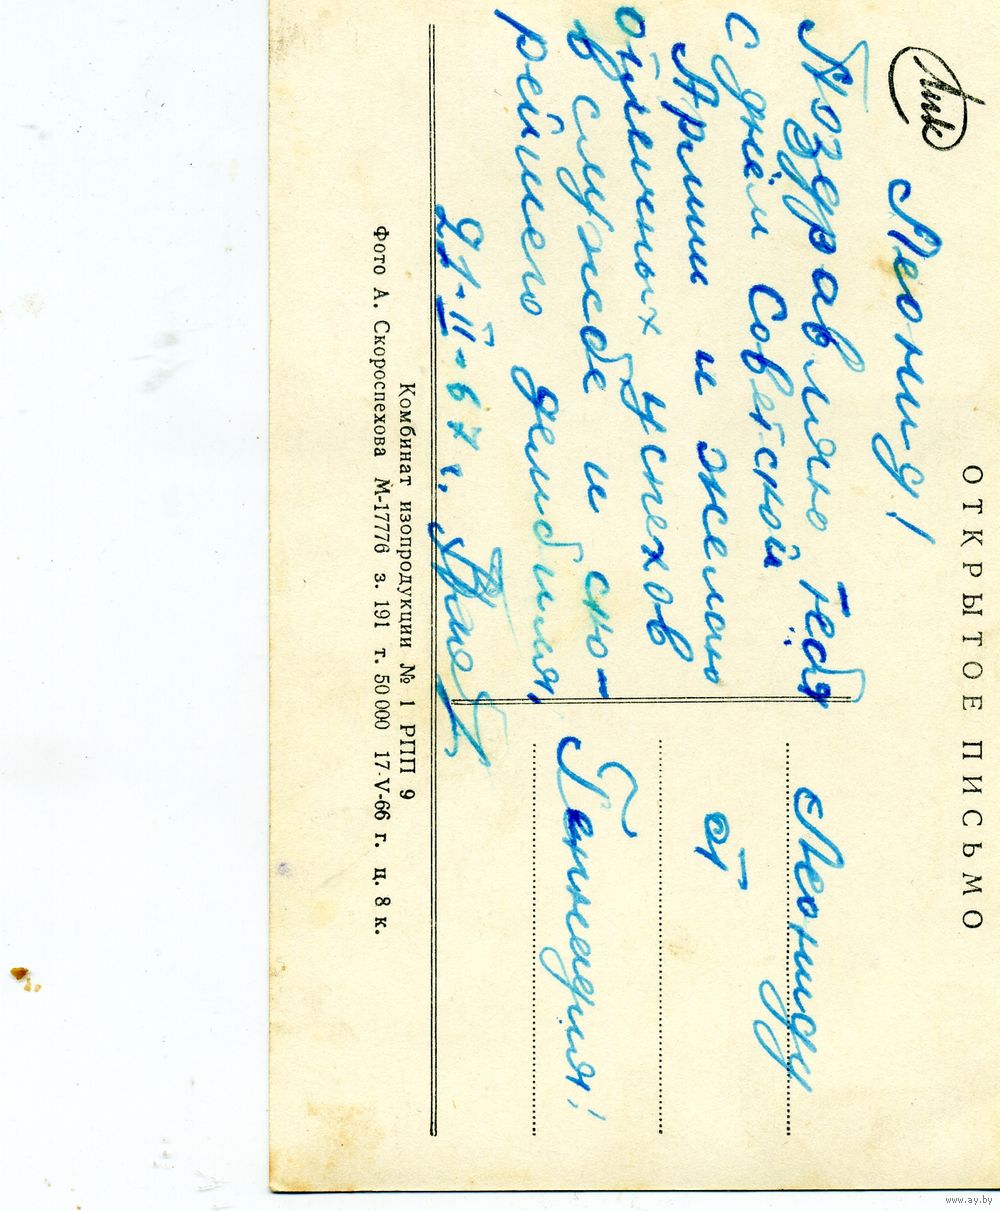 ОТКРЫТОЕ ПИСЬМО
Лик
Леонид!
Поздравляю тебя
с днём Советской
Армии и желаю
отличных успехов
в службе и ско-
рейшего дембиля,
21-II-67 г.
Леониду
от
Геннадия!
Комбинат изопродукции № 1 РПП 9
Фото А. Скороспехова М-17776 з. 191 т. 50 000 17-V-66 г. ц. 8 к.
www.ay.by